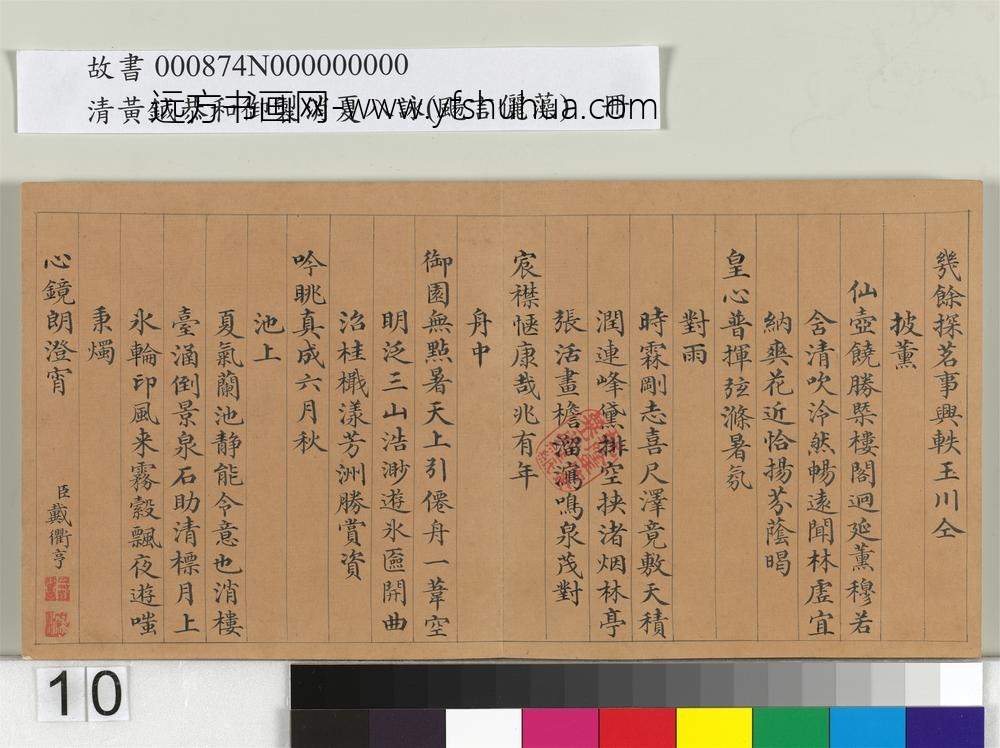 故書 000874N000000000
清黃鉞恭和御製消夏八詠 冊
远方书画网-www.yfshuhua.com
幾餘探茗事興軼玉川仝
披薰
仙壺饒勝槩樓閣迥延薰穆若
含清吹泠然暢遠聞林虛宜
納爽花近恰揚芬蔭暍
皇心普揮弦滌暑氛
對雨
時霖剛志喜尺澤竟敷天積
潤連峰黛排空挾渚烟林亭
張活畫檐溜瀉鳴泉茂對
宸襟愜康哉兆有年
舟中
御園無點暑天上引僊舟一葦空
明泛三山浩渺遊氷奩開曲
沼桂檝漾芳洲勝賞資
吟眺真成六月秋
池上
夏氣蘭池静能令意也消樓
臺涵倒景泉石助清標月上
氷輪印風来霧縠飄夜遊嗤
秉燭
心鏡朗澄宵
臣戴衢亨
10